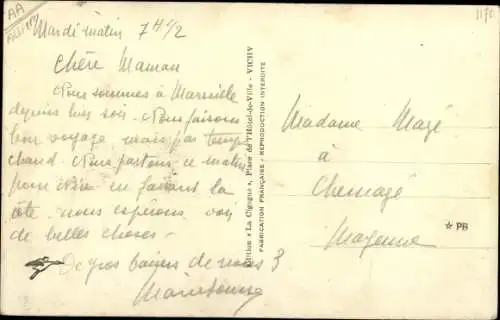 AA
Mardi matin 7 H 1/2
Chère Maman
Nous sommes à Marseille
depuis hier soir. Nous faisons
bon voyage mais pas temps
chaud. Nous partons ce matin
pour Nice en faisant la
côte. nous espérons voir
de belles choses -
De gros baisers de nous 3
Édition « La Cigogne », Place de l'Hôtel-de-Ville - VICHY
FABRICATION FRANÇAISE - REPRODUCTION INTERDITE
Madame Mazé
à
Chemazé
Mayenne
★ PB